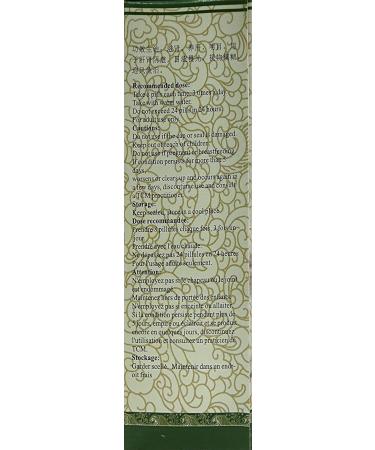 功效主治：滋肾，养肝，明目。用
于肝肾阴虚，目涩畏光，视物模糊，
迎风流泪。
Recommended dose:
Take 8 pills each time 3 times a day.
Take with warm water.
Do not exceed 24 pills in 24 hours.
For adult use only.
Cautions:
Do not use if the cap or seal is damaged.
Keep out of reach of children.
Do not use if pregnant or breastfeeding.
If condition persists for more than 5
days,
worsens or clears up and occurs again in
a few days, discontinue use and consult
a TCM practitioner.
Storage:
Keep sealed, store in a cool place.
Dose recommandee:
Prendre 8 pillules chaque fois, 3 fois un
jour.
Prendre avec l'eau chaude.
Ne depassez pas 24 pillules en 24 heures
Pour l'usage adulte seulement.
Attention:
N'employez pas si le chapeau ou le joint
est endommagé.
Maintenir hors de portée des enfants.
N'employez pas si enceinte ou allaiter.
Si la condition persiste pendant plus de
5 jours, empire ou éclaircit et se produit
encore en quelques jours, discontinuez
l'utilisation et consultez un praticien de
TCM.
Stockage:
Garder scellé. Maintenir dans un end-
roit frais